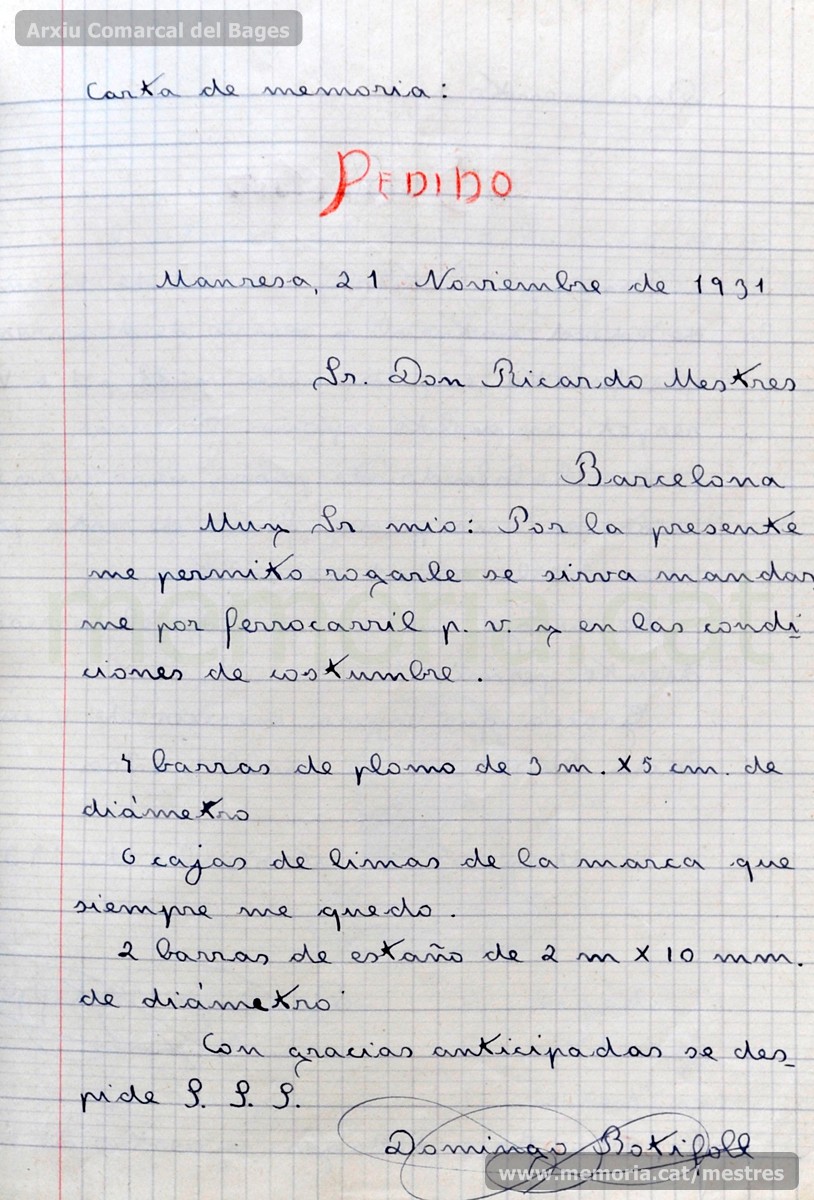 Arxiu Comarcal del Bages
Carta de memoria:
PEDIDO
Manresa, 21 Noviembre de 1931
Sr. Don Ricardo Mestres
Barcelona
Muy Sr mio: Por la presente
me permito rogarle se sirva mandar
me por ferrocarril p. v. y en las condi
ciones de costumbre.
4 barras de plomo de 3 m. x 5 cm. de
diámetro
6 cajas de limas de la marca que
siempre me quedo.
2 barras de estaño de 2 m x 10 mm.
de diámetro
Con gracias anticipadas se des_
pide S. S. S.
Domingo Botifoll
www.memoria.cat/mestres